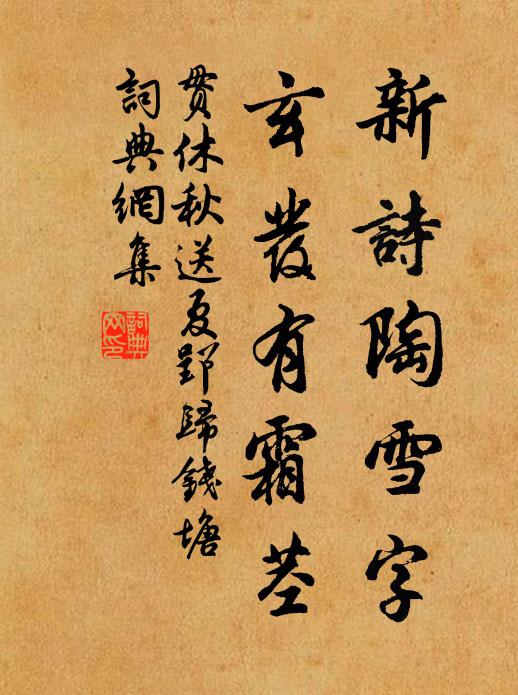 新詩陶雪字
玄發有霜莖
貫休秋送夏郢歸錢塘
詞典網集
詞典网印